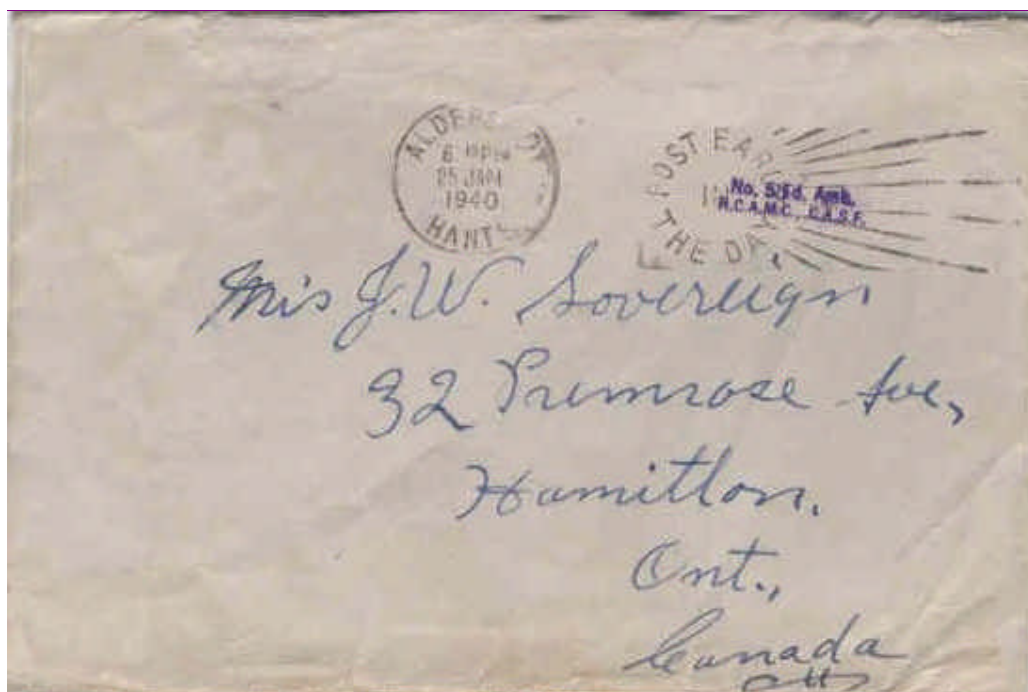 ALDERSHOT
25 JAN
1940
HANTS
POST EARLY
IN
THE DAY
No. 5 Fd. Amb.
R.C.A.M.C., C.A.S.F.
Mrs J.W. Sovereign
32 Primrose Ave,
Hamilton.
Ont.,
Canada